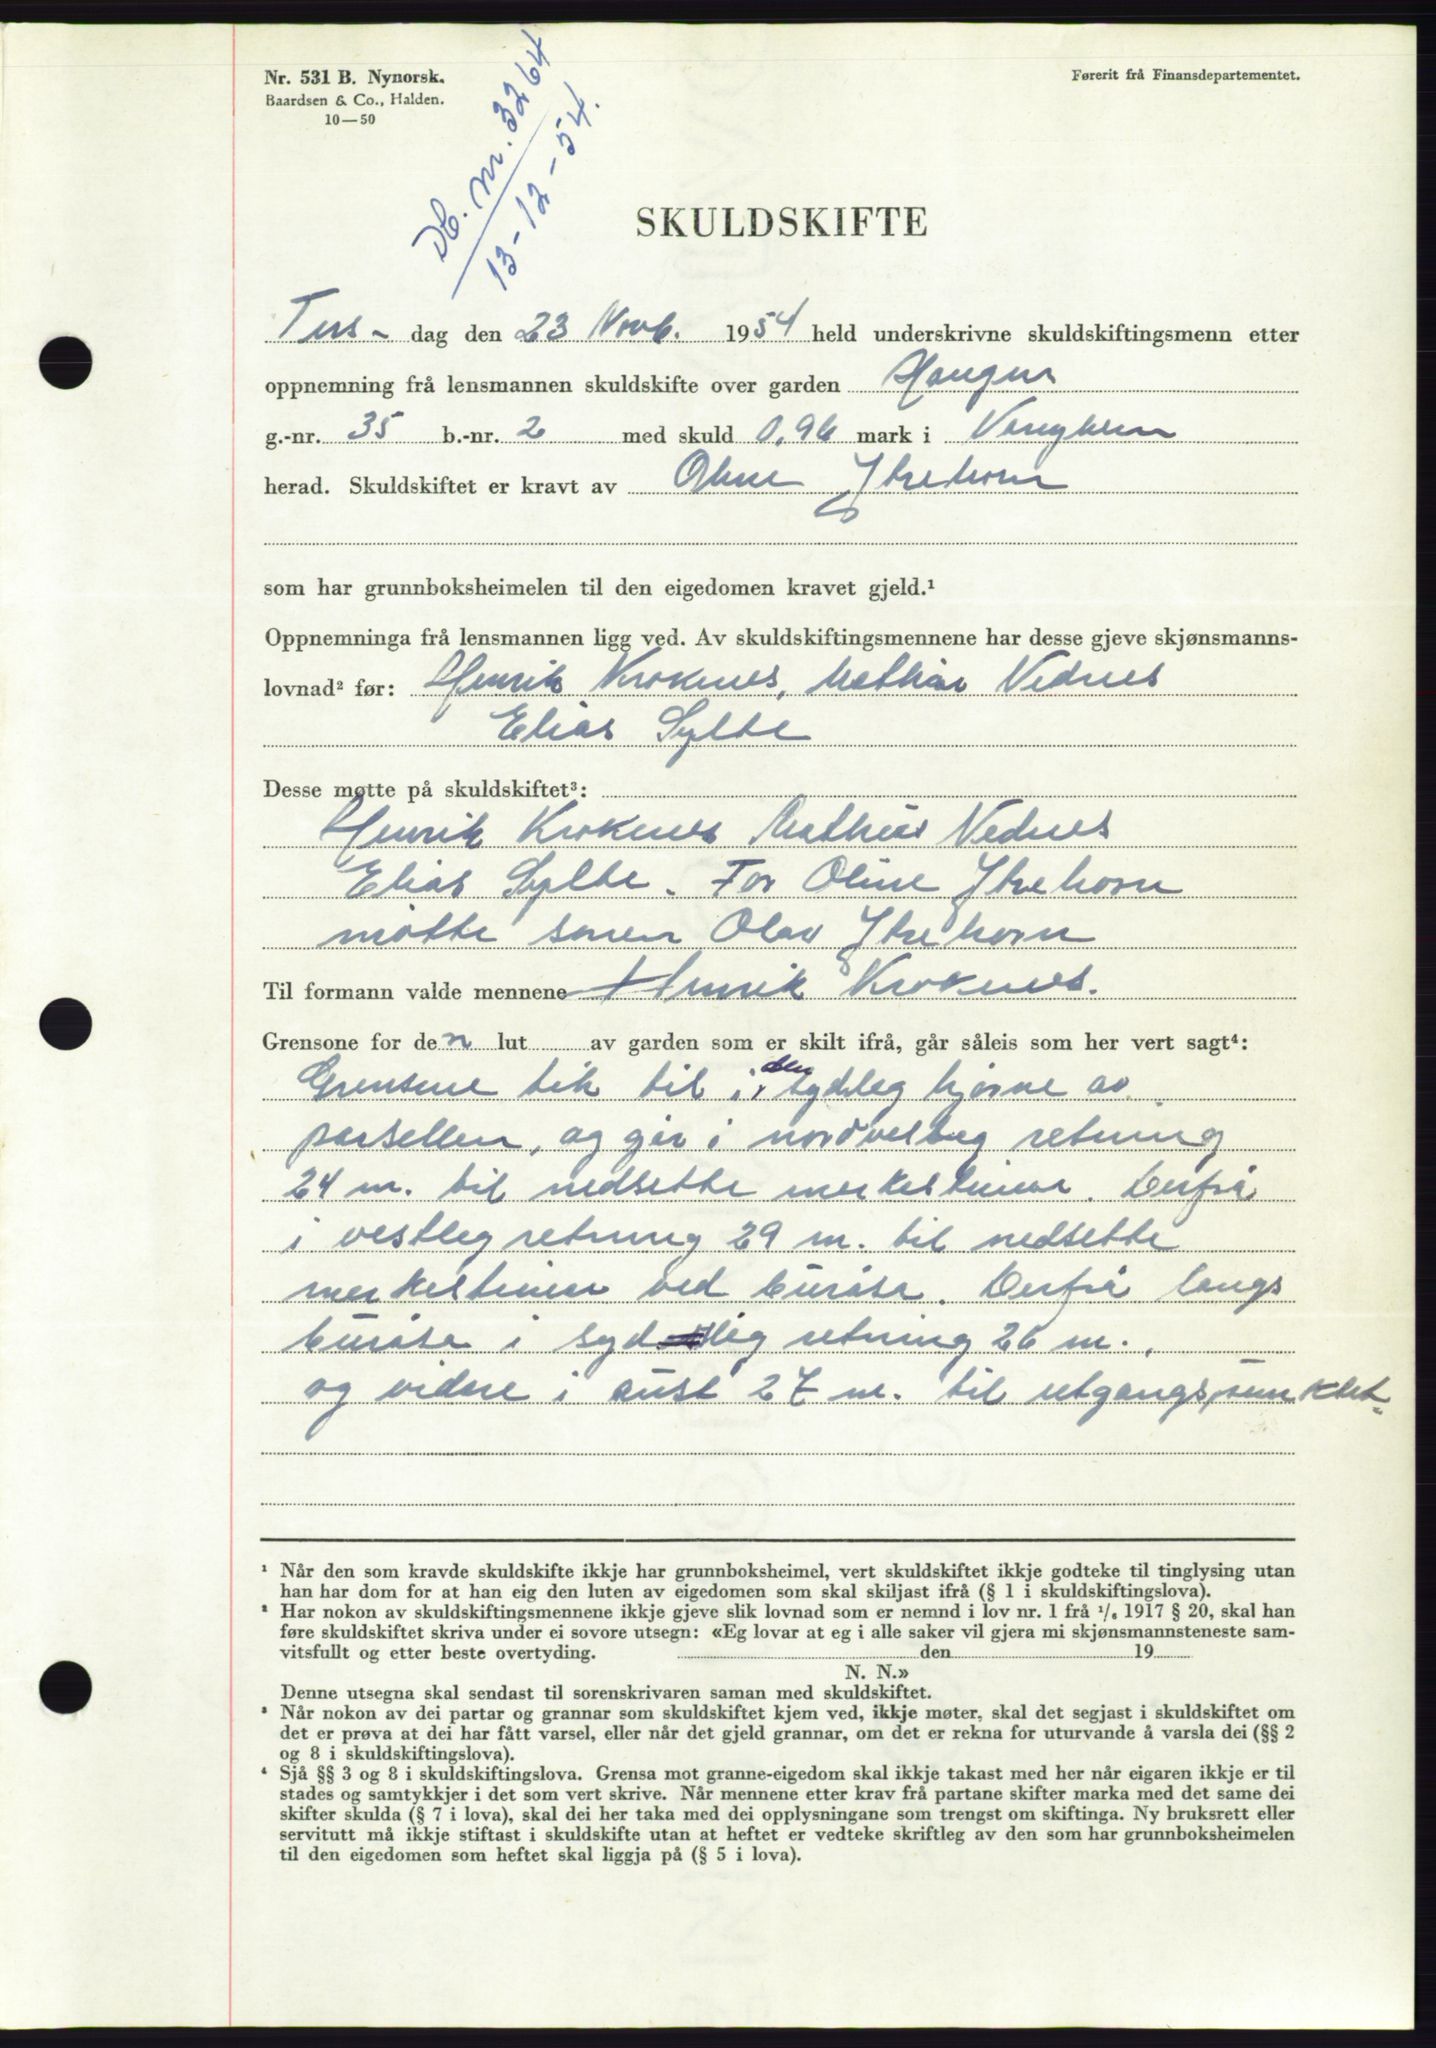 Nr. 531 B. Nynorsk.
Baardsen & Co., Halden.
10—50
Førerit frå Finansdepartementet.
Db. nr. 3264
13-12-54.
SKULDSKIFTE
Tirs- dag den 23 Novb. 1954 held underskrivne skuldskiftingsmenn etter
oppnemning frå lensmannen skuldskifte over garden Haugen
g.-nr. 35 b.-nr. 2 med skuld 0,96 mark i
herad. Skuldskiftet er kravt av Oline Ytrehorn
som har grunnboksheimelen til den eigedomen kravet gjeld.¹
Oppnemninga frå lensmannen ligg ved. Av skuldskiftingsmennene har desse gjeve skjønsmanns-
lovnad² før: Henrik Kroknes, Mathias Vednes
Elias Sylte
Desse møtte på skuldskiftet³:
Henrik Kroknes Mathias Vednes
Elias Sylte. For Oline Ytrehorn
møtte sonen Olav Ytrehorn
Til formann valde mennene Henrik Kroknes.
Grensone for den lut av garden som er skilt ifrå, går såleis som her vert sagt⁴:
Grensene tek til i den sydleg hjørne av
parsellen, og går i nordvestleg retning
24 m. til nedsette merkesteinar. Derfrå
i vestleg retning 29 m. til nedsette
merkesteinar ved buråsa. Derfrå langs
buråsa i sydleg retning 26 m.,
og vidare i aust 27 m. til utgangspunktet.
¹ Når den som kravde skuldskifte ikkje har grunnboksheimel, vert skuldskiftet ikkje godteke til tinglysing utan
han har dom for at han eig den luten av eigedomen som skal skiljast ifrå (§ 1 i skuldskiftingslova).
² Har nokon av skuldskiftingsmennene ikkje gjeve slik lovnad som er nemnd i lov nr. 1 frå ¹/₆ 1917 § 20, skal han
føre skuldskiftet skriva under ei sovore utsegn: «Eg lovar at eg i alle saker vil gjera mi skjønsmannsteneste sam-
vitsfullt og etter beste overtyding. den 19
N. N.»
Denne utsegna skal sendast til sorenskrivaren saman med skuldskiftet.
³ Når nokon av dei partar og grannar som skuldskiftet kjem ved, ikkje møter, skal det segjast i skuldskiftet om
det er prøva at dei har fått varsel, eller når det gjeld grannar, om det er rekna for uturvande å varsla dei (§§ 2
og 8 i skuldskiftingslova).
⁴ Sjå §§ 3 og 8 i skuldskiftingslova. Grensa mot granne-eigedom skal ikkje takast med her når eigaren ikkje er til
stades og samtykkjer i det som vert skrive. Når mennene etter krav frå partane skifter marka med det same dei
skifter skulda (§ 7 i lova), skal dei her taka med dei opplysningane som trengst om skiftinga. Ny bruksrett eller
servitutt må ikkje stiftast i skuldskifte utan at heftet er vedteke skriftleg av den som har grunnboksheimelen
til den eigedomen som heftet skal liggja på (§ 5 i lova).